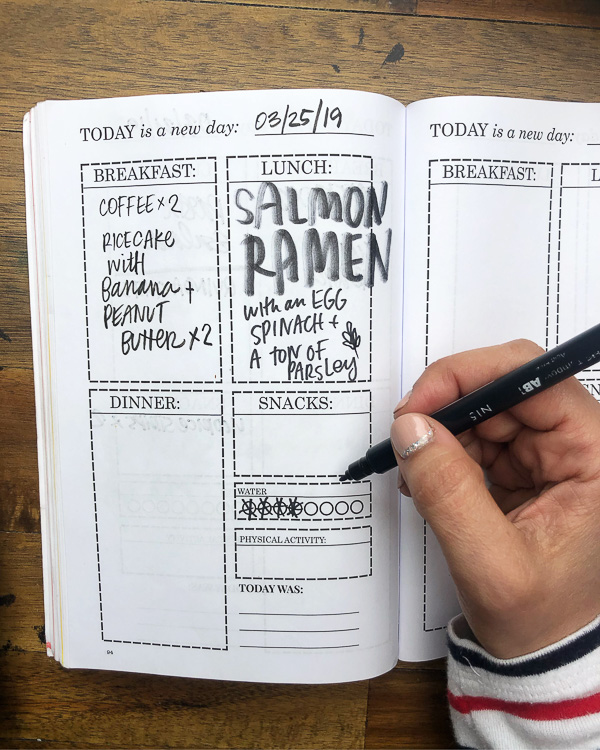 TODAY is a new day: 03/25/19
BREAKFAST:
COFFEE x 2
RICECAKE
with
Banana +
PEANUT
BUTTER x2
LUNCH:
SALMON
RAMEN
with an EGG
SPINACH +
A TON OF
PARSLEY
DINNER:
SNACKS:
WATER
PHYSICAL ACTIVITY:
TODAY WAS:
94
TODAY is a new day:
BREAKFAST:
L